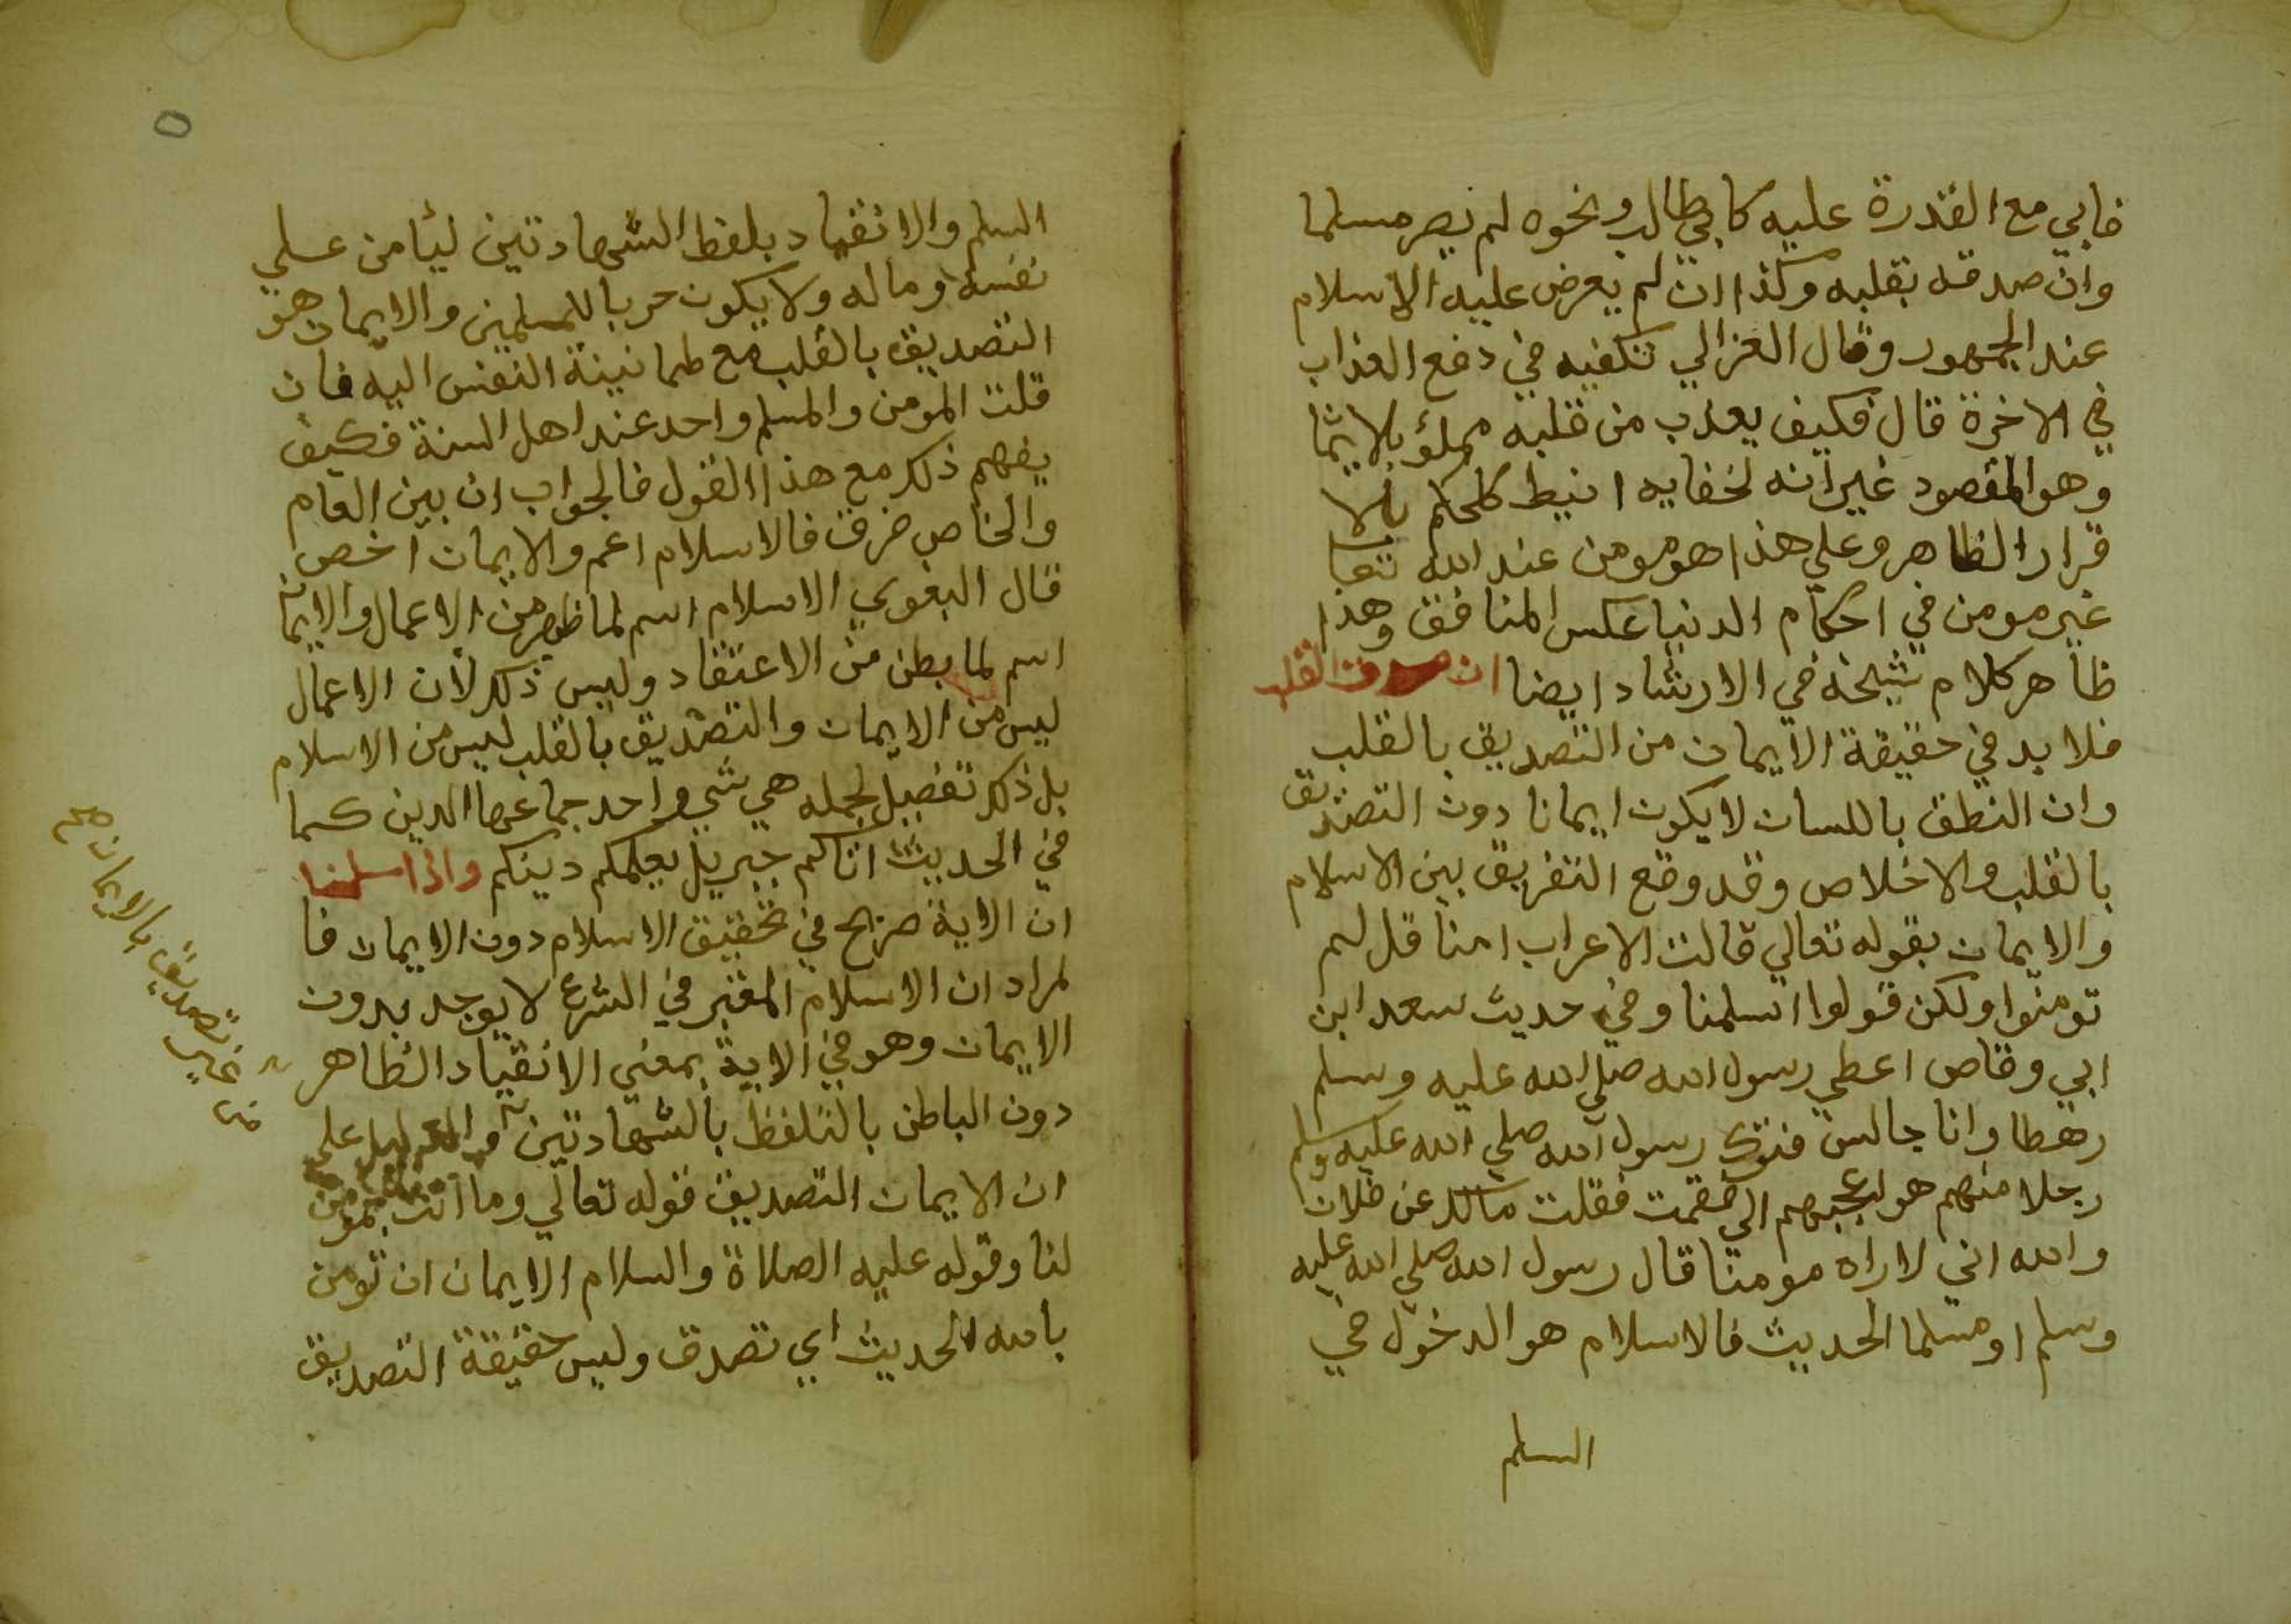 فابي مع القدرة عليه كابي طالب ونحوه لم يصر مسلما
وان صدقه بقلبه وكذا ان لم يعرض عليه الاسلام
عند الجمهور وقال الغزالي تكفيه في دفع العذاب
في الاخرة قال فكيف يعذب من قلبه مملؤ بلايما
وهو المقصود غير انه لخفايه انيط كلحكم بالا
قرار الظاهر وعلي هذا هو مومن عند الله تعا
غير مومن في احكام الدنيا عكس المنافق وهذا
ظاهر كلام شيخه في الارشاد ايضا ان صدق القلب
فلا بد في حقيقة الايمان من التصديق بالقلب
وان النطق باللسان لا يكون ايمانا دون التصديق
بالقلب والاخلاص وقد وقع التفريق بين الاسلام
والايمان بقوله تعالي قالت الاعراب امنا قل لم
تومنوا ولكن قولوا اسلمنا وفي حديث سعد ابن
ابي وقاص اعطي رسول الله صلي الله عليه وسلم
رهطا وانا جالس فترك رسول الله صلي الله عليه وسلم
رجلا منهم هو اعجبهم الي فقمت فقلت مالك عن فلان
والله اني لاراه مومنا قال رسول الله صلي الله عليه
وسلم او مسلما الحديث فالاسلام هو الدخول في
السلم
٥
السلم والانقياد بلفظ الشهادتين ليأمن علي
نفسه وماله ولا يكون حربا للمسلمين والايمان هو
التصديق بالقلب مع طمانينة النفس اليه فان
قلت المومن والمسلم واحد عند اهل السنة فكيف
يفهم ذلك مع هذا القول فالجواب ان بين العام
والخاص فرق فالاسلام اعم والايمان اخص
قال البغوي الاسلام اسم لما ظهر من الاعمال والايمان
اسم لما بطن من الاعتقاد وليس ذلك لان الاعمال
ليس من الايمان والتصديق بالقلب ليس من الاسلام
بل ذلك تفصيل لجمله هي شي واحد جماعها الدين كما
في الحديث اتاكم جبريل يعلمكم دينكم واذا سلمنا
ان الاية صريح في تحقيق الاسلام دون الايمان فا
لمراد ان الاسلام المعتبر في الشرع لا يوجد بدون
الايمان وهو في الاية بمعني الانقياد الظاهر
دون الباطن بالتلفظ بالشهادتين والدليل علي
ان الايمان التصديق قوله تعالي وما انت بمومن
لنا وقوله عليه الصلاة والسلام الايمان ان تومن
بالله الحديث اي تصدق وليس حقيقة التصديق
من غير تصديق بالايمان صح